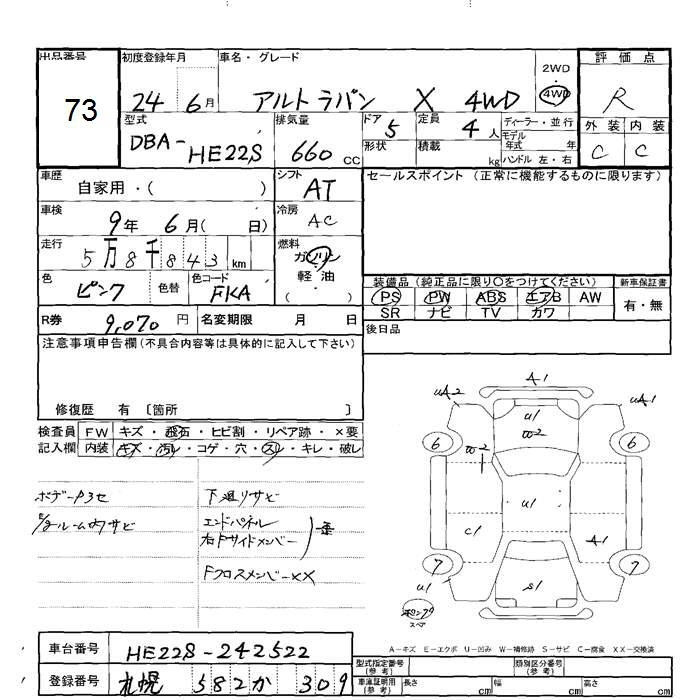 出品番号
73
初度登録年月
24 6月
車名・グレード
アルトラパン X 4WD
2WD
4WD
評価点
R
外装 内装
C C
型式
DBA-HE22S
排気量
660 CC
ドア
5
形状
定員
4 人
積載
kg
ディーラー・並行
モデル
年式 年
ハンドル 左・右
車歴
自家用・( )
シフト
AT
車検
9年 6月( 日)
冷房
AC
走行
5万8千843 km
燃料
ガソリン
軽油
( )
色
ピンク
色替
色コード
FKA
R券
9,070 円
名変期限 月 日
セールスポイント (正常に機能するものに限ります)
装備品 (純正品に限り〇をつけてください)
PS PW ABS エアB AW
SR ナビ TV カワ
新車保証書
有・無
後日品
注意事項申告欄(不具合内容等は具体的に記入して下さい)
修復歴 有 〔箇所 〕
検査員
記入欄
FW キズ・飛石・ヒビ割・リペア跡・×要
内装 キズ・汚レ・コゲ・穴・スレ・キレ・破レ
下廻リサビ
エンドパネル
右Fサイドメンバー
Fクロスメンバーxx
A1
UA2
UA1
U1
W2
W2
6
6
U1
C1
A1
7
7
U1
S1
スペア
A-キズ E-エクボ U-凹み W-補修跡 S-サビ C-腐食 XX-交換済
車台番号
HE22S-242522
登録番号
札幌 582 か 309
型式指定番号
(参考)
類別区分番号
(参考)
車庫証明用
(参考)
長さ cm
幅 cm
高さ cm